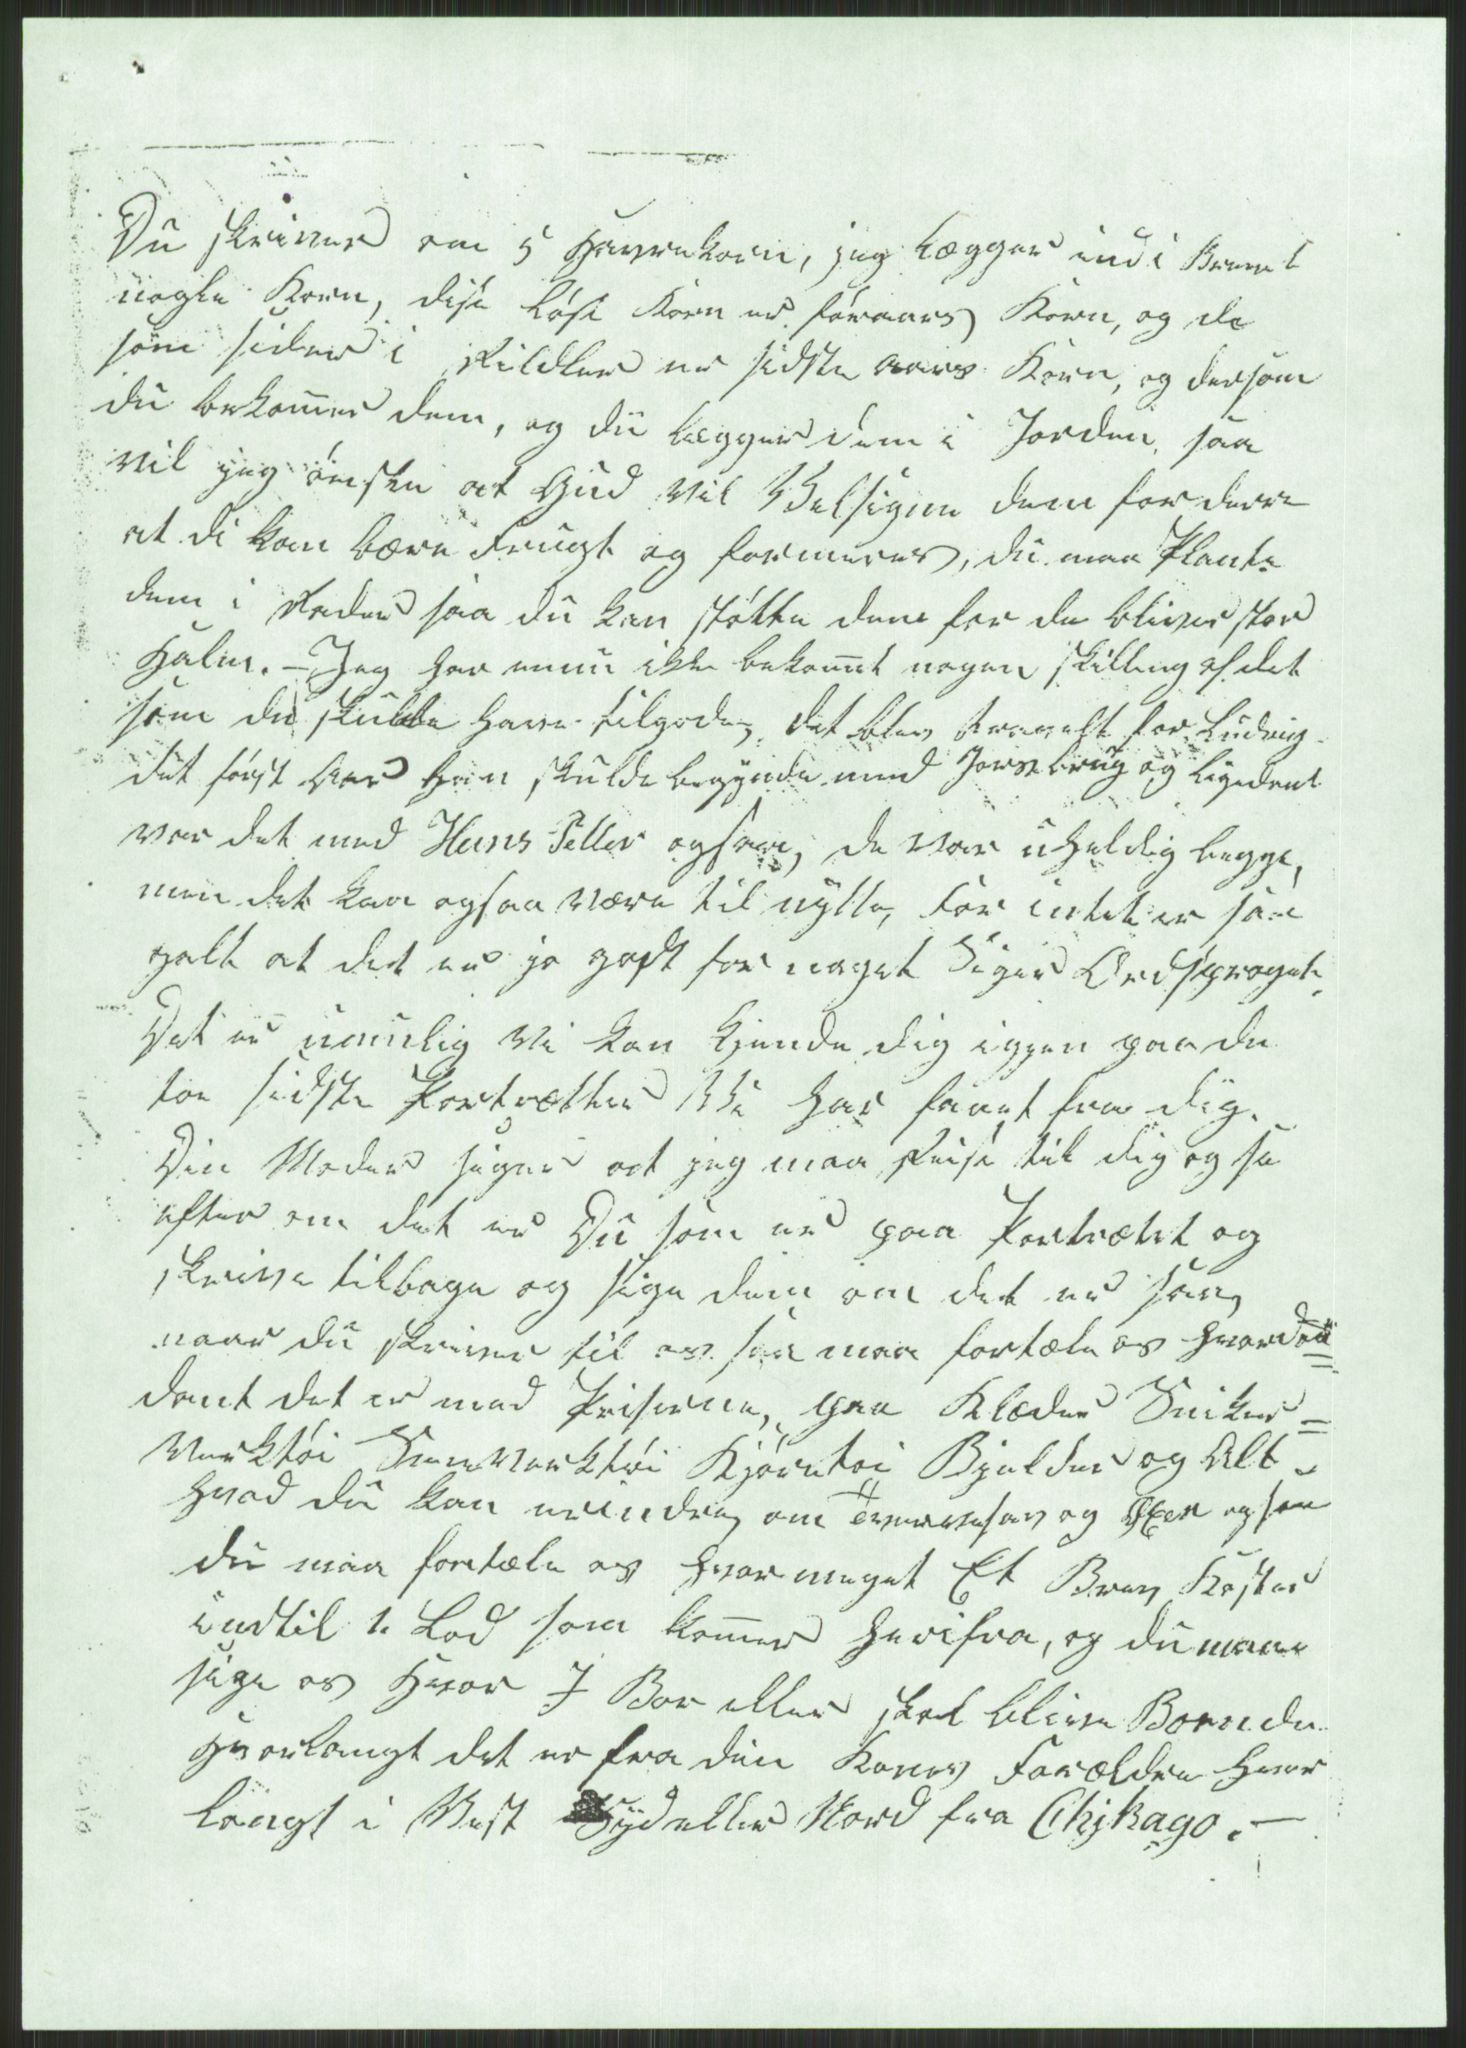 Du skriver om 5 Havrekorn, jeg lægger ind i Brevet
nogle Korn, disse løse Korn er foraars Korn, og de
som sider i Kildler er sidste aars Korn, og dersom
du bekommer dem, og du lægger dem i Jorden, saa
vil jeg ønske at Gud vil Velsigne dem for dere
at di kan bære Frugt og formeres, du maa Plante
dem i Rader saa du kan støtte dem for de bliver stor
Halm. – Jeg har ennu ikke bekommet nogen skilling af det
som du skulde have tilgode, det blev travelt for Ludvig
det først Aar han skulde begynde med Jorsbrug og ligedent
var det med Hans Petter ogsaa, de var uheldig begge,
men det kan ogsaa være til nytte, for intet er saa
galt at det er jo godt for noget Siger Ordsproget.
Det er umulig vi kan kjende dig igjen paa de
to sidste Portrætter Vi har faaet fra dig.
Din Moder siger at jeg maa Reise til dig og se
efter om det er Du som er paa Portrætet og
skrive tilbage og sige dem om det er saa,
naar du skriver til os saa maa fortæle os hvorda=
dant det er med Priserne, paa Klæder Sniker=
verktøi Smeverktøi Kjøretøi Bjelder og Alt
hvad du kan erindre, om Tømmersav og Øxer ogsaa
du maa fortæle os hvor meget Et Brev Koster
indtil 1. Lod som kommer herifra, og du maa
sige os Hvor I Bor eller skal blive Boende
Hvorlangt det er fra din Kones Forældre hvor
langt i Vest Syd eller Nord fra Chikago. –